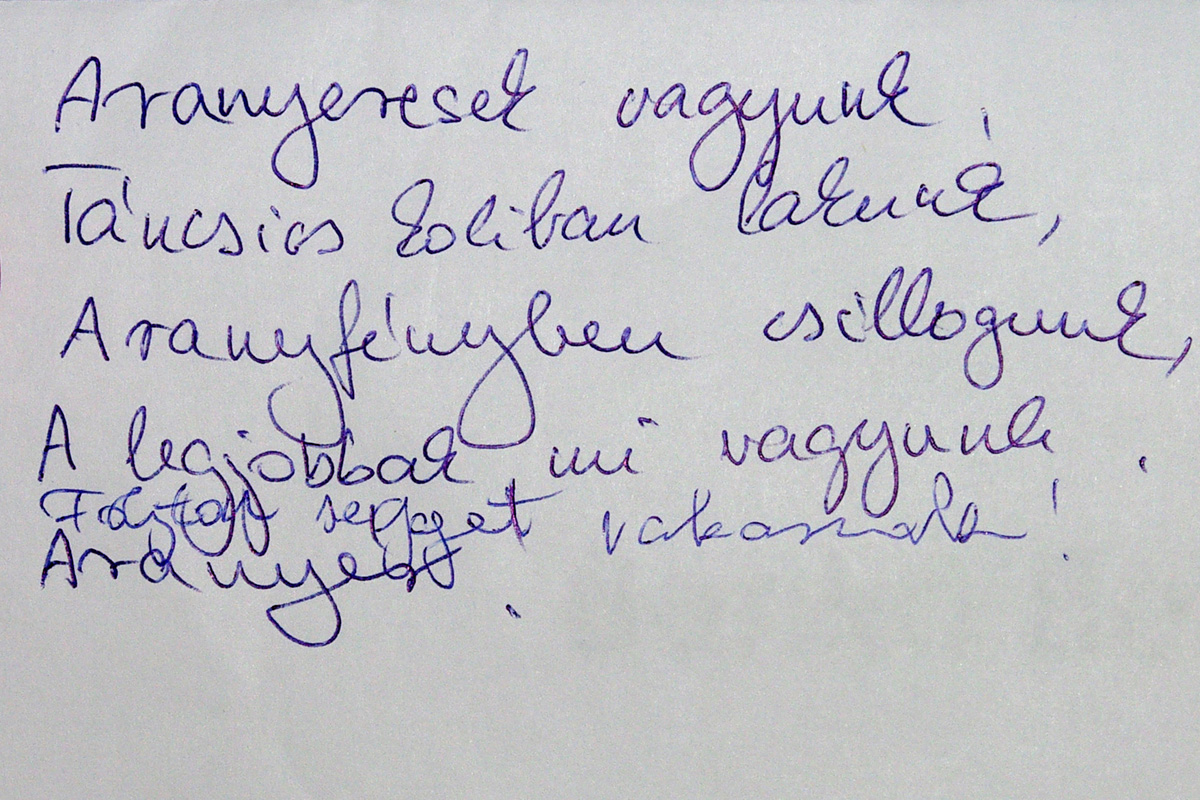 Aranyeresek vagyunk,
Táncsics koliban lakunk,
Aranyfényben csillogunk,
A legjobbak mi vagyunk.
segget vakarunk!
Aranyér.